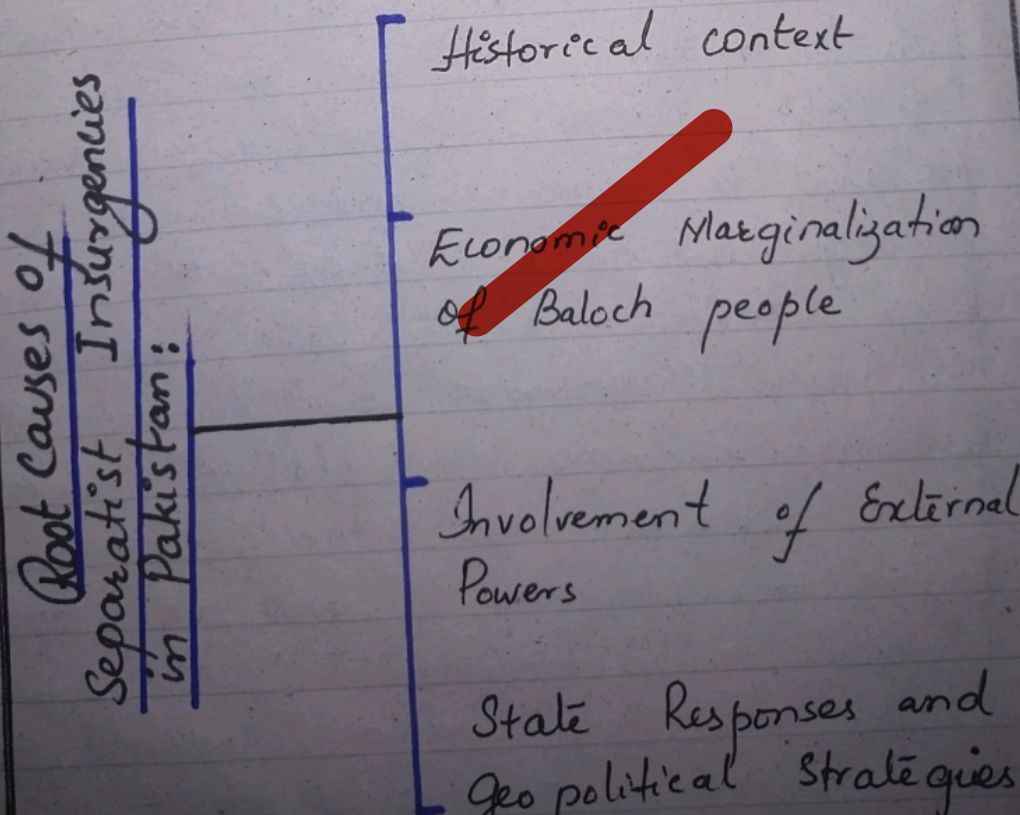 Root Causes of
Separatist Insurgencies
in Pakistan:
Historical context
Economic Marginalization
of Baloch people
Involvement of External
Powers
State Responses and
Geo political Strategies